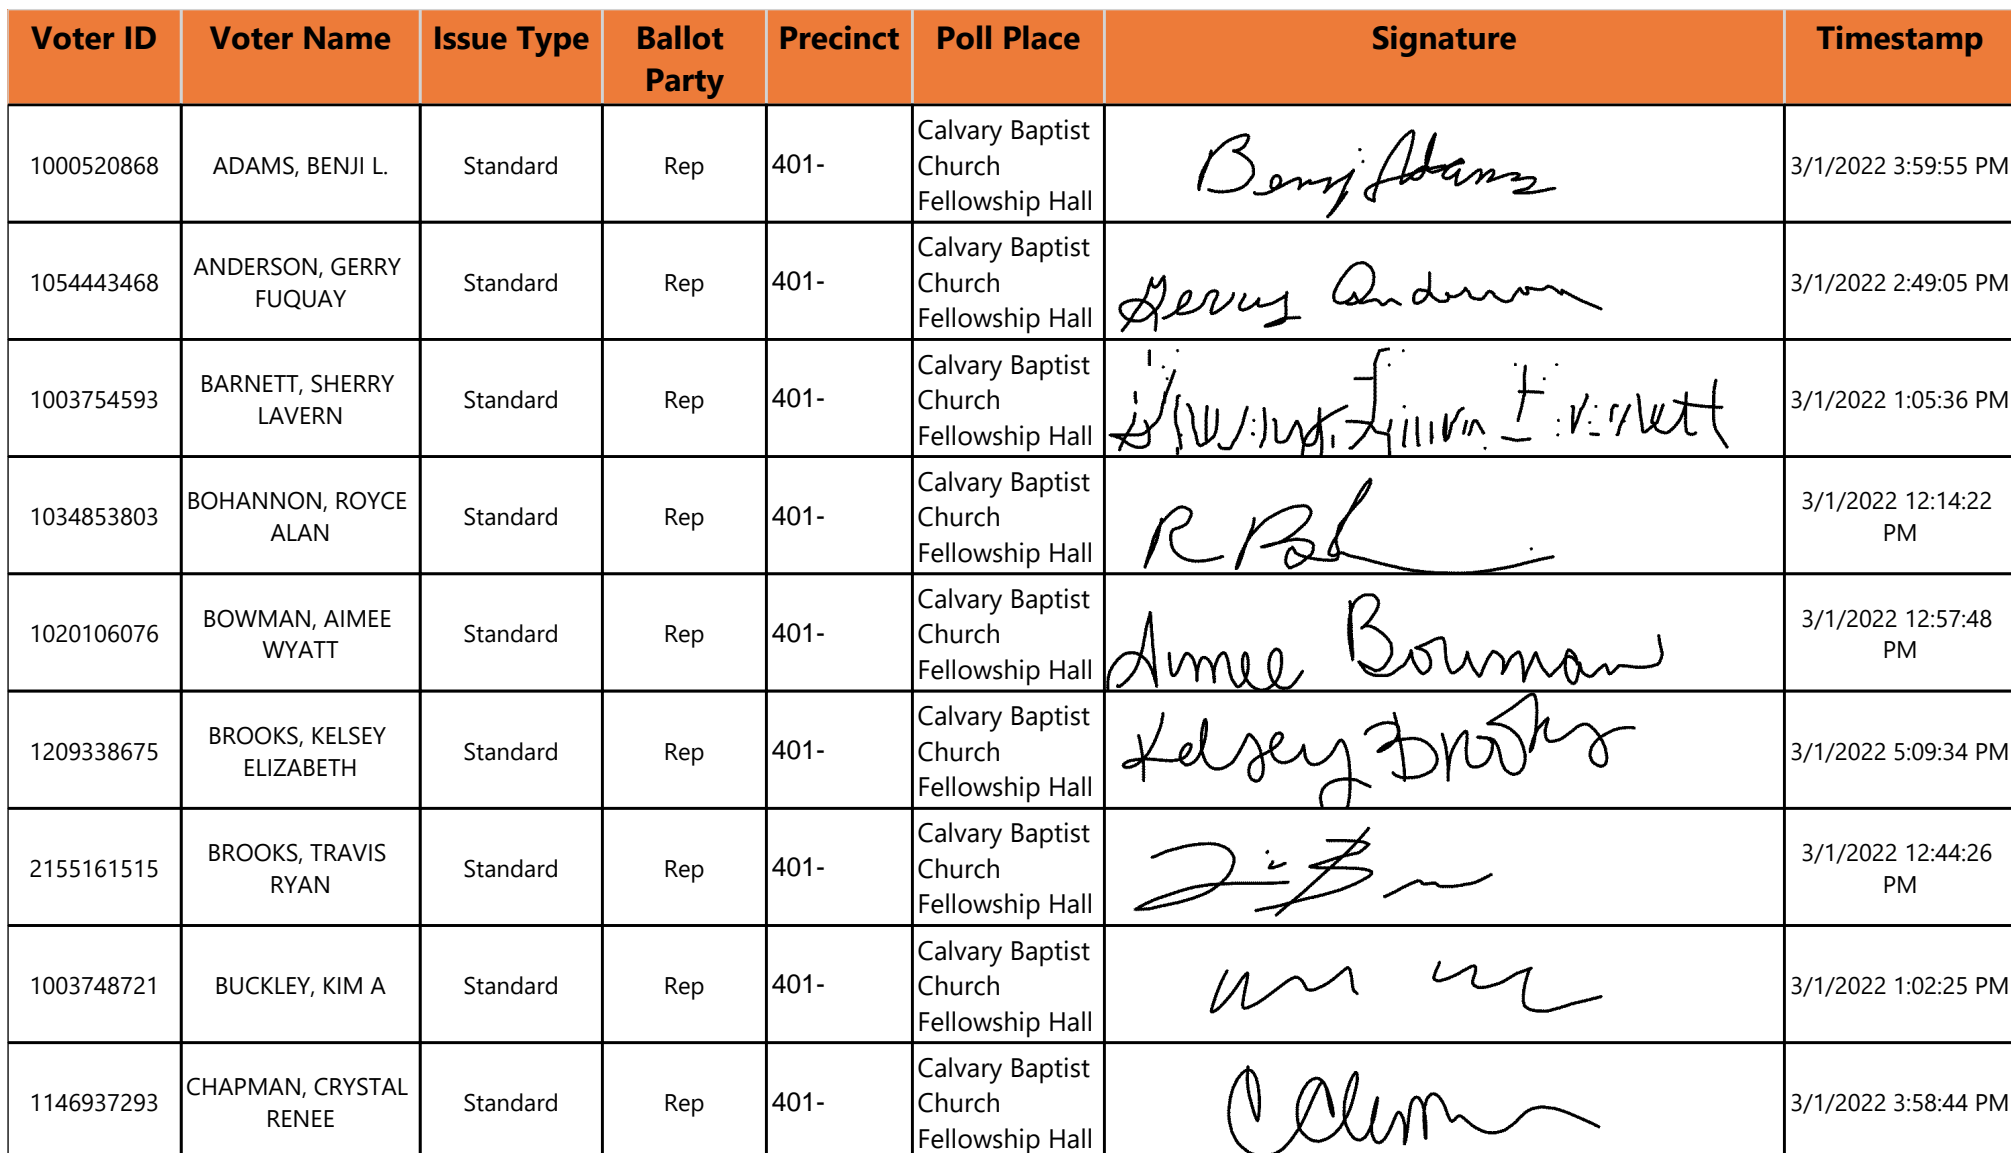 Voter ID Voter Name Issue Type Ballot Party Precinct Poll Place Signature Timestamp
1000520868 ADAMS, BENJI L. Standard Rep 401- Calvary Baptist Church Fellowship Hall Benji Adams 3/1/2022 3:59:55 PM
1054443468 ANDERSON, GERRY FUQUAY Standard Rep 401- Calvary Baptist Church Fellowship Hall Gerry Anderson 3/1/2022 2:49:05 PM
1003754593 BARNETT, SHERRY LAVERN Standard Rep 401- Calvary Baptist Church Fellowship Hall 3/1/2022 1:05:36 PM
1034853803 BOHANNON, ROYCE ALAN Standard Rep 401- Calvary Baptist Church Fellowship Hall 3/1/2022 12:14:22 PM
1020106076 BOWMAN, AIMEE WYATT Standard Rep 401- Calvary Baptist Church Fellowship Hall Aimee Bowman 3/1/2022 12:57:48 PM
1209338675 BROOKS, KELSEY ELIZABETH Standard Rep 401- Calvary Baptist Church Fellowship Hall Kelsey Brooks 3/1/2022 5:09:34 PM
2155161515 BROOKS, TRAVIS RYAN Standard Rep 401- Calvary Baptist Church Fellowship Hall 3/1/2022 12:44:26 PM
1003748721 BUCKLEY, KIM A Standard Rep 401- Calvary Baptist Church Fellowship Hall 3/1/2022 1:02:25 PM
1146937293 CHAPMAN, CRYSTAL RENEE Standard Rep 401- Calvary Baptist Church Fellowship Hall 3/1/2022 3:58:44 PM